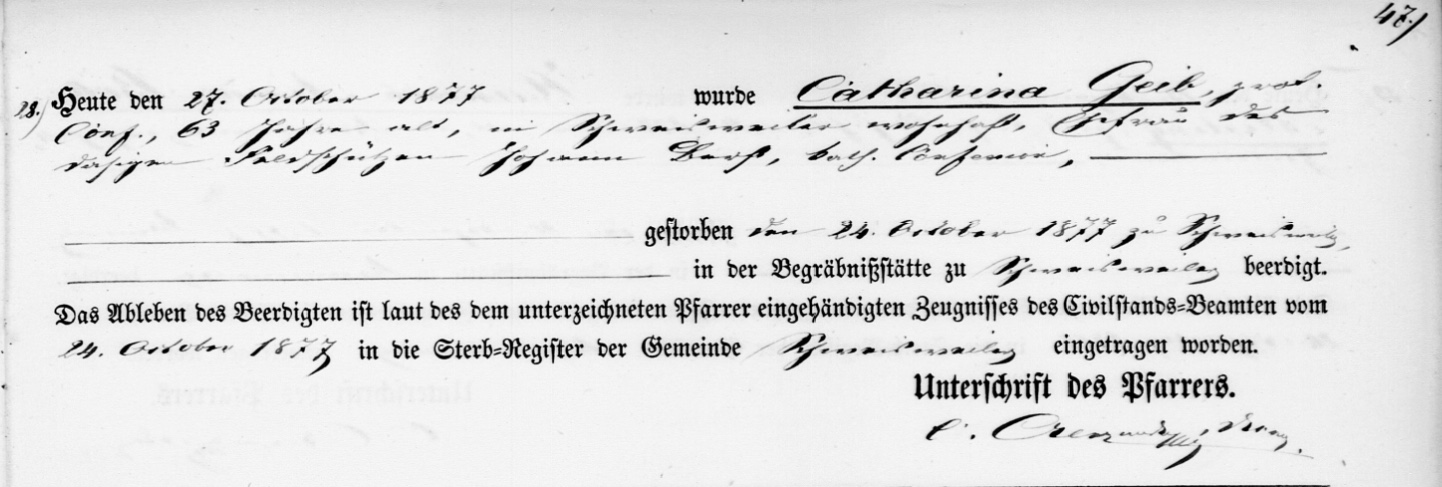 47.)
28.) Heute den 27. October 1877 wurde Catharina Geib, prot.
Conf., 63 Jahre alt, in Schweisweiler wohnhaft, Ehefrau des
dasigen Feldschützen Johann, kath. Confession,
gestorben den 24. October 1877 zu Schweisweiler,
in der Begräbnißstätte zu Schweisweiler beerdigt.
Das Ableben des Beerdigten ist laut des dem unterzeichneten Pfarrer eingehändigten Zeugnisses des Civilstands-Beamten vom
24. October 1877 in die Sterb-Register der Gemeinde Schweisweiler eingetragen worden.
Unterschrift des Pfarrers.
C.